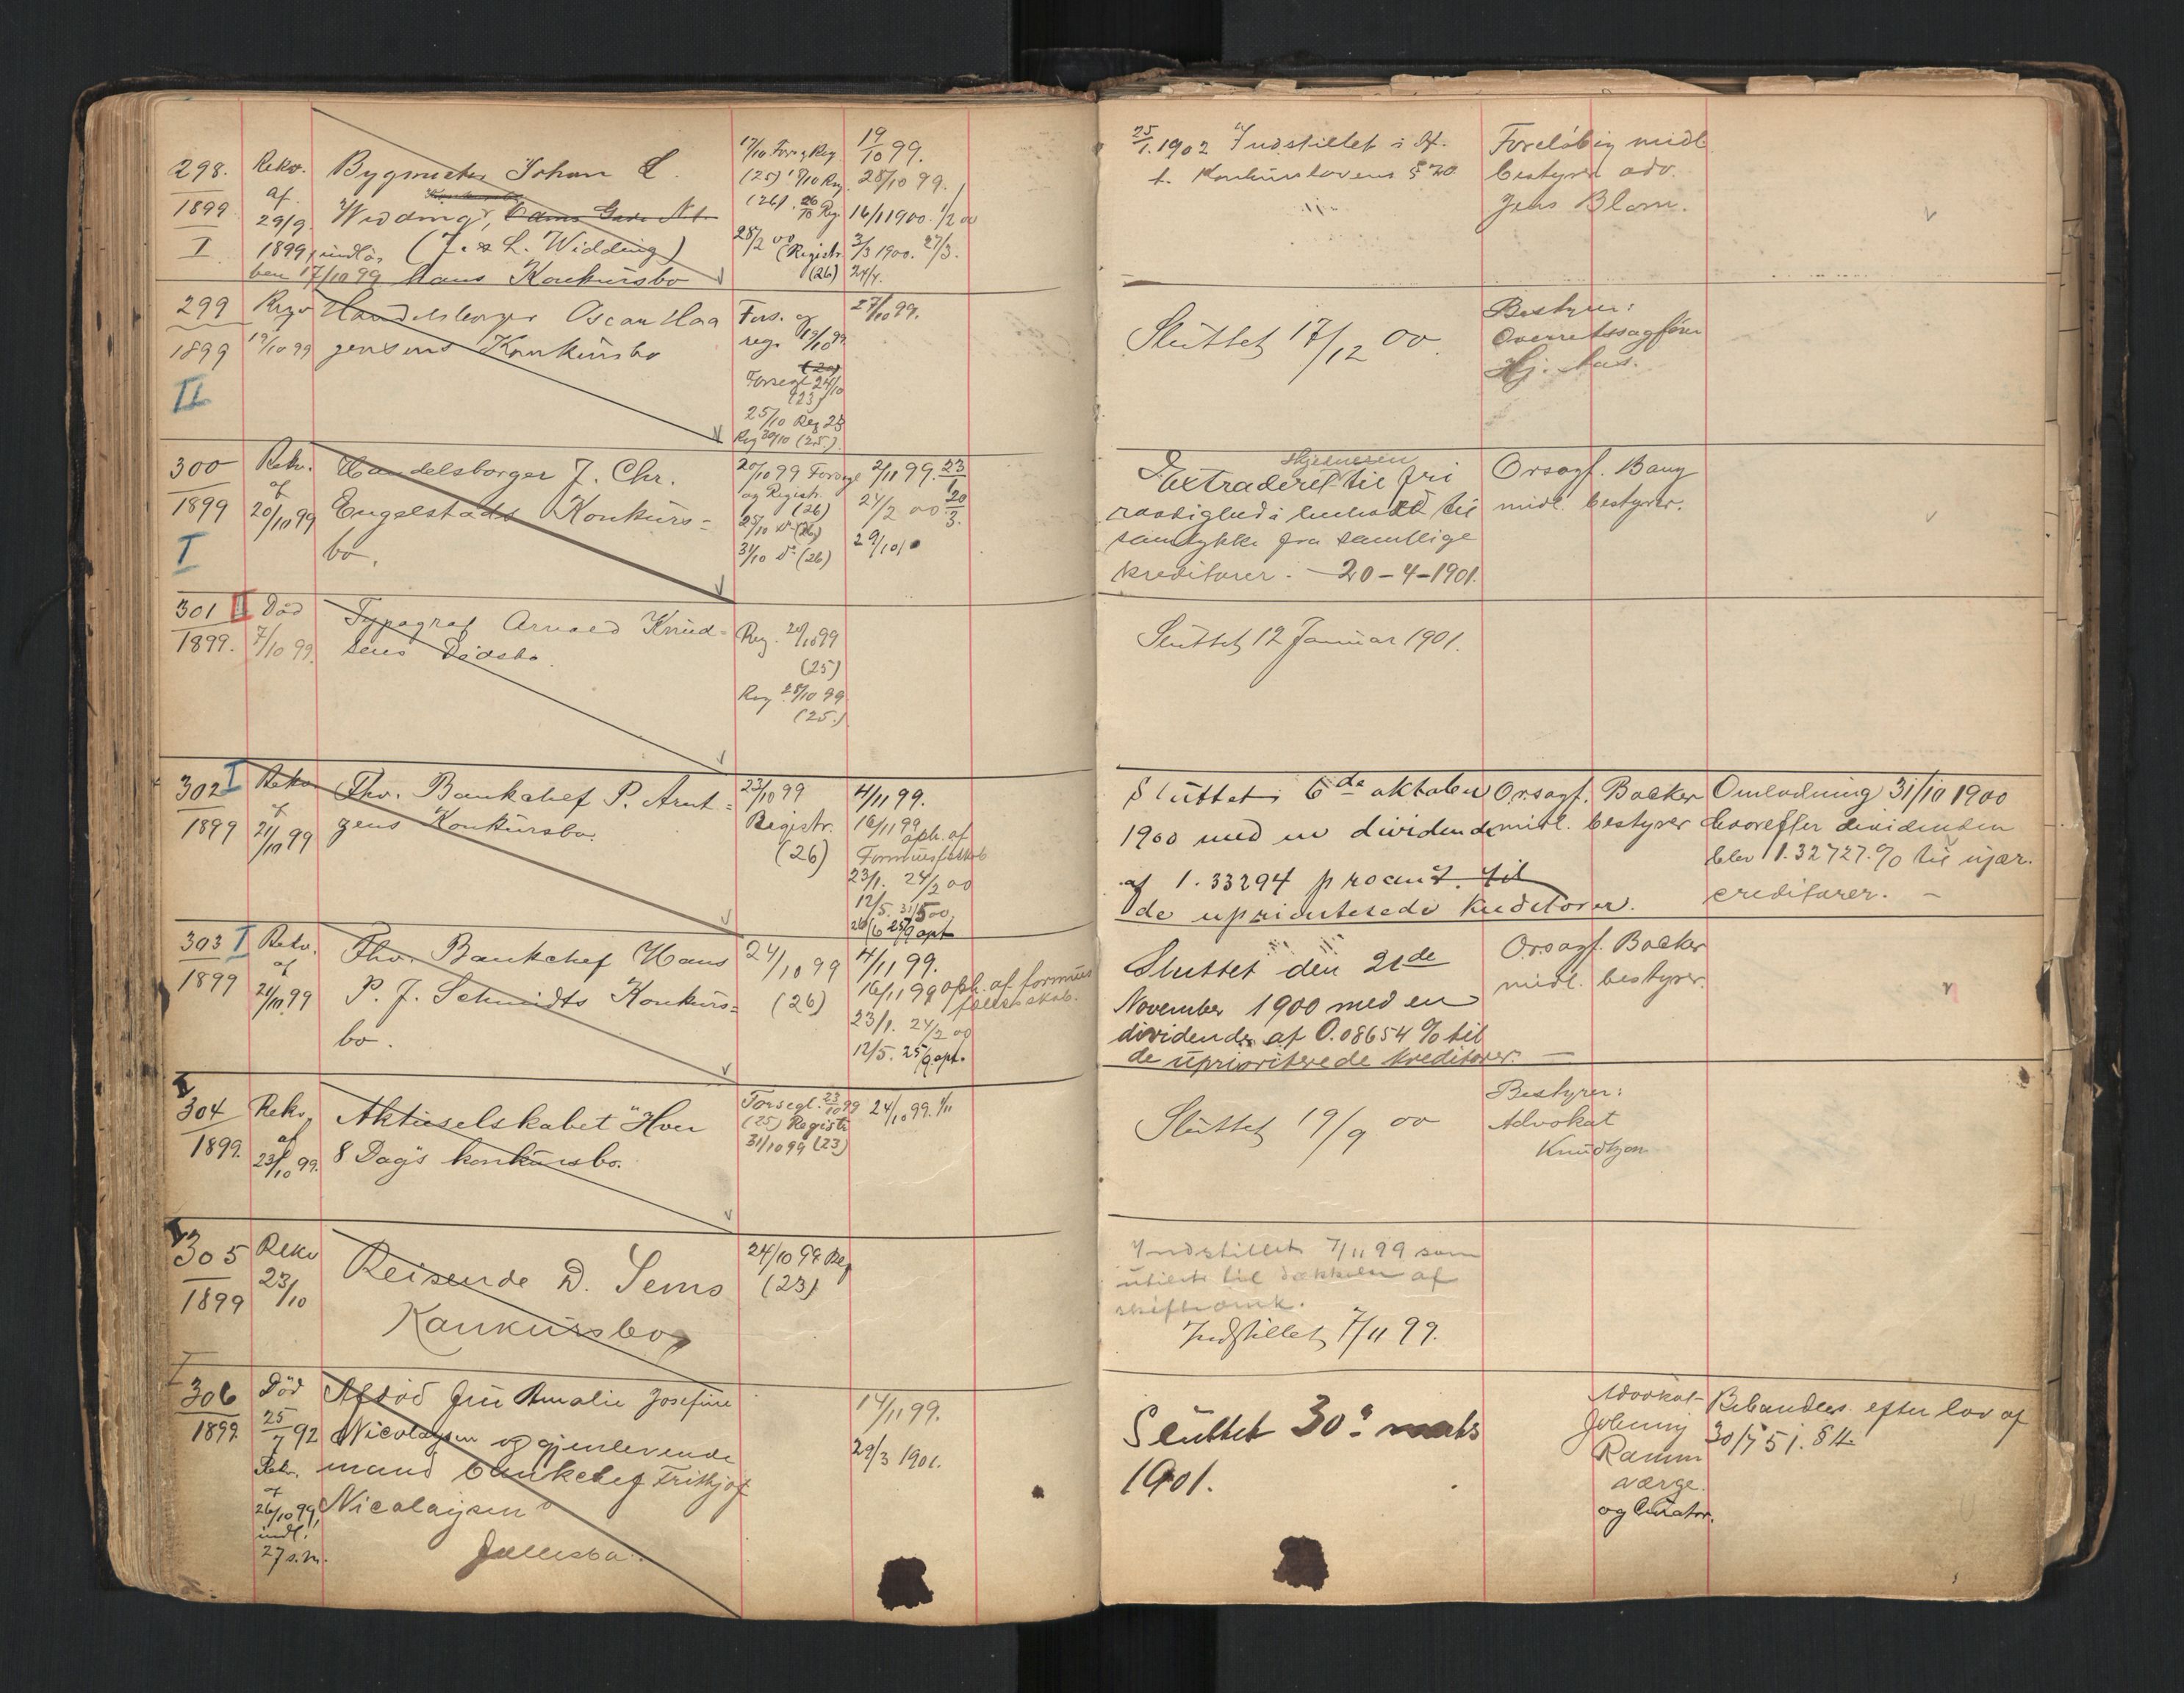 298.
1899
I
Rekv.
af
29/9.
1899, indlø
ben 17/10 99
Bygmester Johan L.
Widding,
(J. & L. Widding)
hans Konkursbo
17/10 Forseg Reg
(25) Reg.
(26). 20/10 Reg
28/2 00 (Registr.
(26)
19/10 99.
28/10 99.
16/1 1900. 1/2 00
3/3 1900. 27/3.
24/4.
25/1. 1902 Indstillet i H.
t. Konkurslovens § 20
Foreløbig midl.
bestyrer adv.
Jens Blom.
299
1899
II
Rekv
19/10 99
Handelsborger Oscar Haa
gensens Konkursbo
Fors. og
reg. 19/10 99
Forsegl 24/10
(23)
25/10 Reg 23
Reg 30/10 (25.)
27/10 99.
Sluttet 17/12 00.
Bestyrer:
Overretssagfører
Hj. Aas.
300
1899
I
Rekv.
af
20/10 99
Handelsborger J. Chr.
Engelstads Konkurs=
bo.
20/10 99 Forsegl
og Registr.
(26)
25/10 do (26)
31/10 do (26)
2/11 99. 23/1
24/2 00 20/3.
29/10
Extraderet til fri
raadighed i henhold til
samtykke fra samtlige
kreditorer. — 20-4-1901.
Orsagf. Baug
midl. bestyrer.
301 II
1899.
Død
7/10 99.
Typograf Arnold Knud=
sens Dødsbo.
Reg. 20/10 99
(25)
Reg 28/10 99
(25.)
Sluttet 12 Januar 1901.
302 I
1899
Rekv
af
21/10 99
Fhv. Bankchef P. Arnt=
zens Konkursbo.
23/10 99
Registr.
(26)
4/11 99.
16/11 99
oph. af
Formuesfællesk
23/1. 24/2 00
12/5. 31/5 00,
26/6 25/9 opt
Sluttet 6de oktober
1900 med en dividende
af 1.33294 procent til
de uprioriterede kreditorer.
Orsagf. Backer
midl. bestyrer
Omlodning 31/10 1900
hvorefter dividenden
blev 1.32727 % til ujær.
creditorer. —
303 I
1899
Rekv.
af
21/10 99
Fhv. Bankchef Hans
P. J. Schmidts Konkurs=
bo.
24/10 99
(26)
4/11 99.
16/11 99 oph. af formues
fællesskab.
23/1. 24/2 00
12/5. 25/9 opt.
Sluttet den 21de
November 1900 med en
dividende af 0.08654 % til
de uprioriterede kreditorer. —
Orsagf. Backer
midl. bestyrer.
I
304
1899.
Rekv.
af
23/10 99.
Aktieselskabet "Hver
8 Dag"s konkursbo.
Forsegl. 23/10 99
(25) Registr
31/10 99 (23)
24/10 99. 1/11
Sluttet 19/9 00
Bestyrer:
Advokat
Knudtzon
I
305
1899
Rekv
23/10
Reisende D. Sems
Konkursbo
24/10 99 Reg
(23)
Indstillet 7/11 99 som
utilstr til dækkelse af
skifteomk.
Indstillet 7/11 99.
I
306
1899.
Død
25/7 92
Rekv.
af
26/10 99,
indl.
27 s.m.
Afdød fru Amalie Josefine
Nicolaysen og gjenlevende
mand bankchef Frithjof
Nicolaysen
fællesbo.
14/11 99.
29/3 1901.
Sluttet 30. marts
1901.
Advokat
Johnny
Ramm
værge.
og Curator.
Behandles efter lov af
30/7 51. § 4.